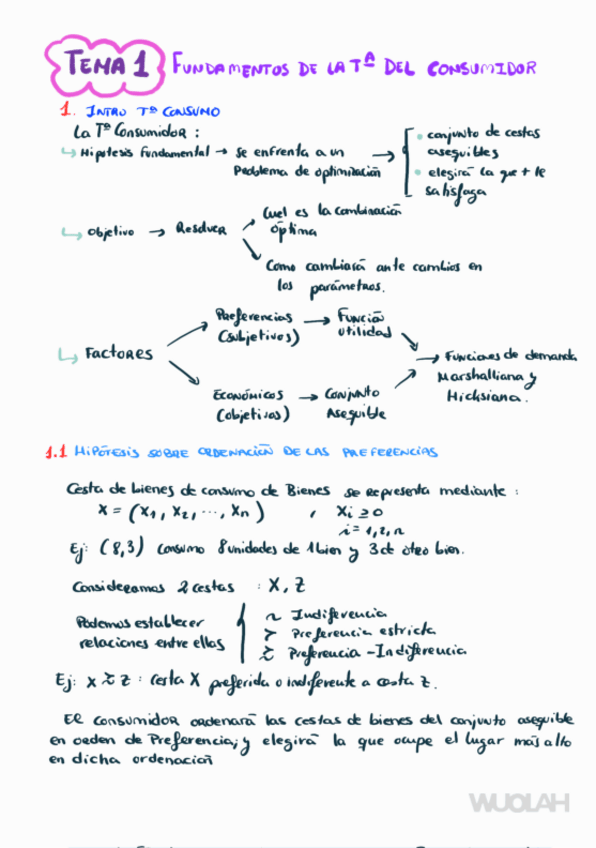 TEMA 1 FUNDAMENTOS DE LA Tª DEL CONSUMIDOR
1. INTRO Tª CONSUMO
La Tª Consumidor :
↳ Hipótesis Fundamental → se enfrenta a un Problema de optimización →
• conjunto de cestas asequibles
• elegirá la que + le satisfaga
↳ Objetivo → Resolver
Cual es la combinación óptima
Como cambiará ante cambios en los parámetros.
↳ FACTORES
Preferencias (subjetivos) → Función utilidad
Económicos (objetivos) → Conjunto Asequible
→ Funciones de demanda Marshalliana y Hicksiana.
1.1 HIPÓTESIS SOBRE ORDENACIÓN DE LAS PREFERENCIAS
Cesta de bienes de consumo de Bienes se representa mediante :
X = (X1, X2, ..., Xn) , Xi ≥ 0
i = 1,2,n
Ej: (8,3) consumo 8 unidades de 1 bien y 3 de otro bien.
Consideramos 2 cestas : X, Z
Podemos establecer relaciones entre ellos
~ Indiferencia
≻ Preferencia estricta
≿ Preferencia - Indiferencia
Ej: X ≿ Z : Cesta X preferida o indiferente a cesta Z.
El consumidor ordenará las cestas de bienes del conjunto asequible
en orden de Preferencia, y elegirá la que ocupe el lugar más alto
en dicha ordenación
WUOLAH